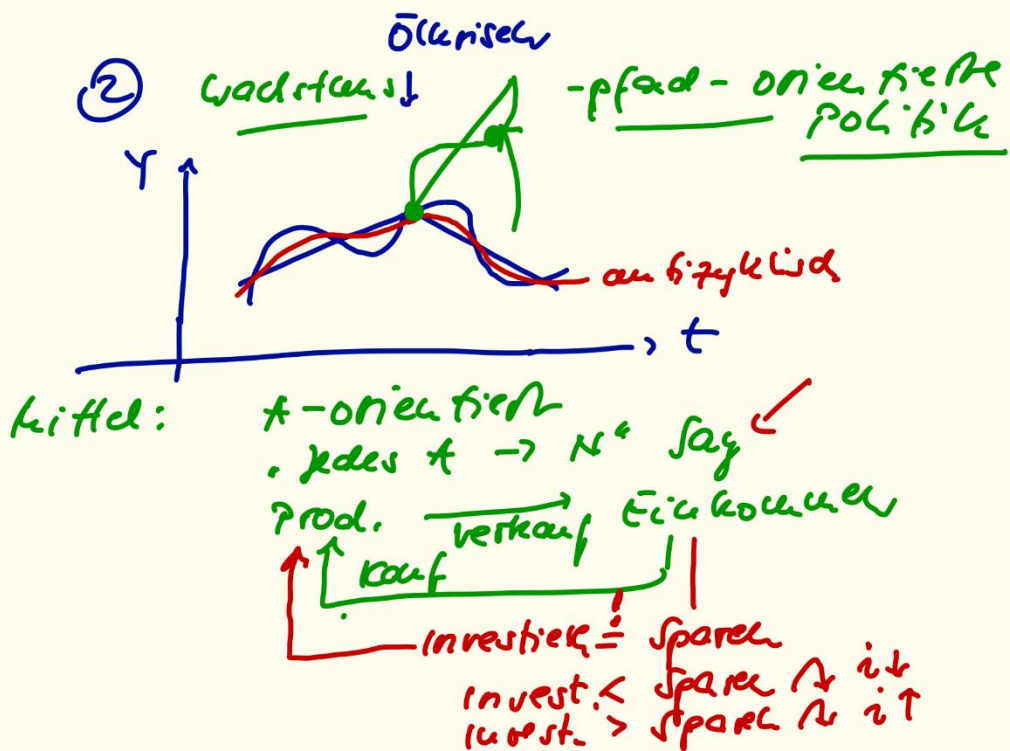 Ölkrisen
② Wachstums↓ -pfad-orientierte
Politik
Y
antizyklisch
t
Mittel: A-orientiert
. jedes A → N“ Say
Prod. Verkauf Einkommen
Kauf
investieren = sparen
invest. < sparen ↷ i↓
invest. > sparen ↷ i↑